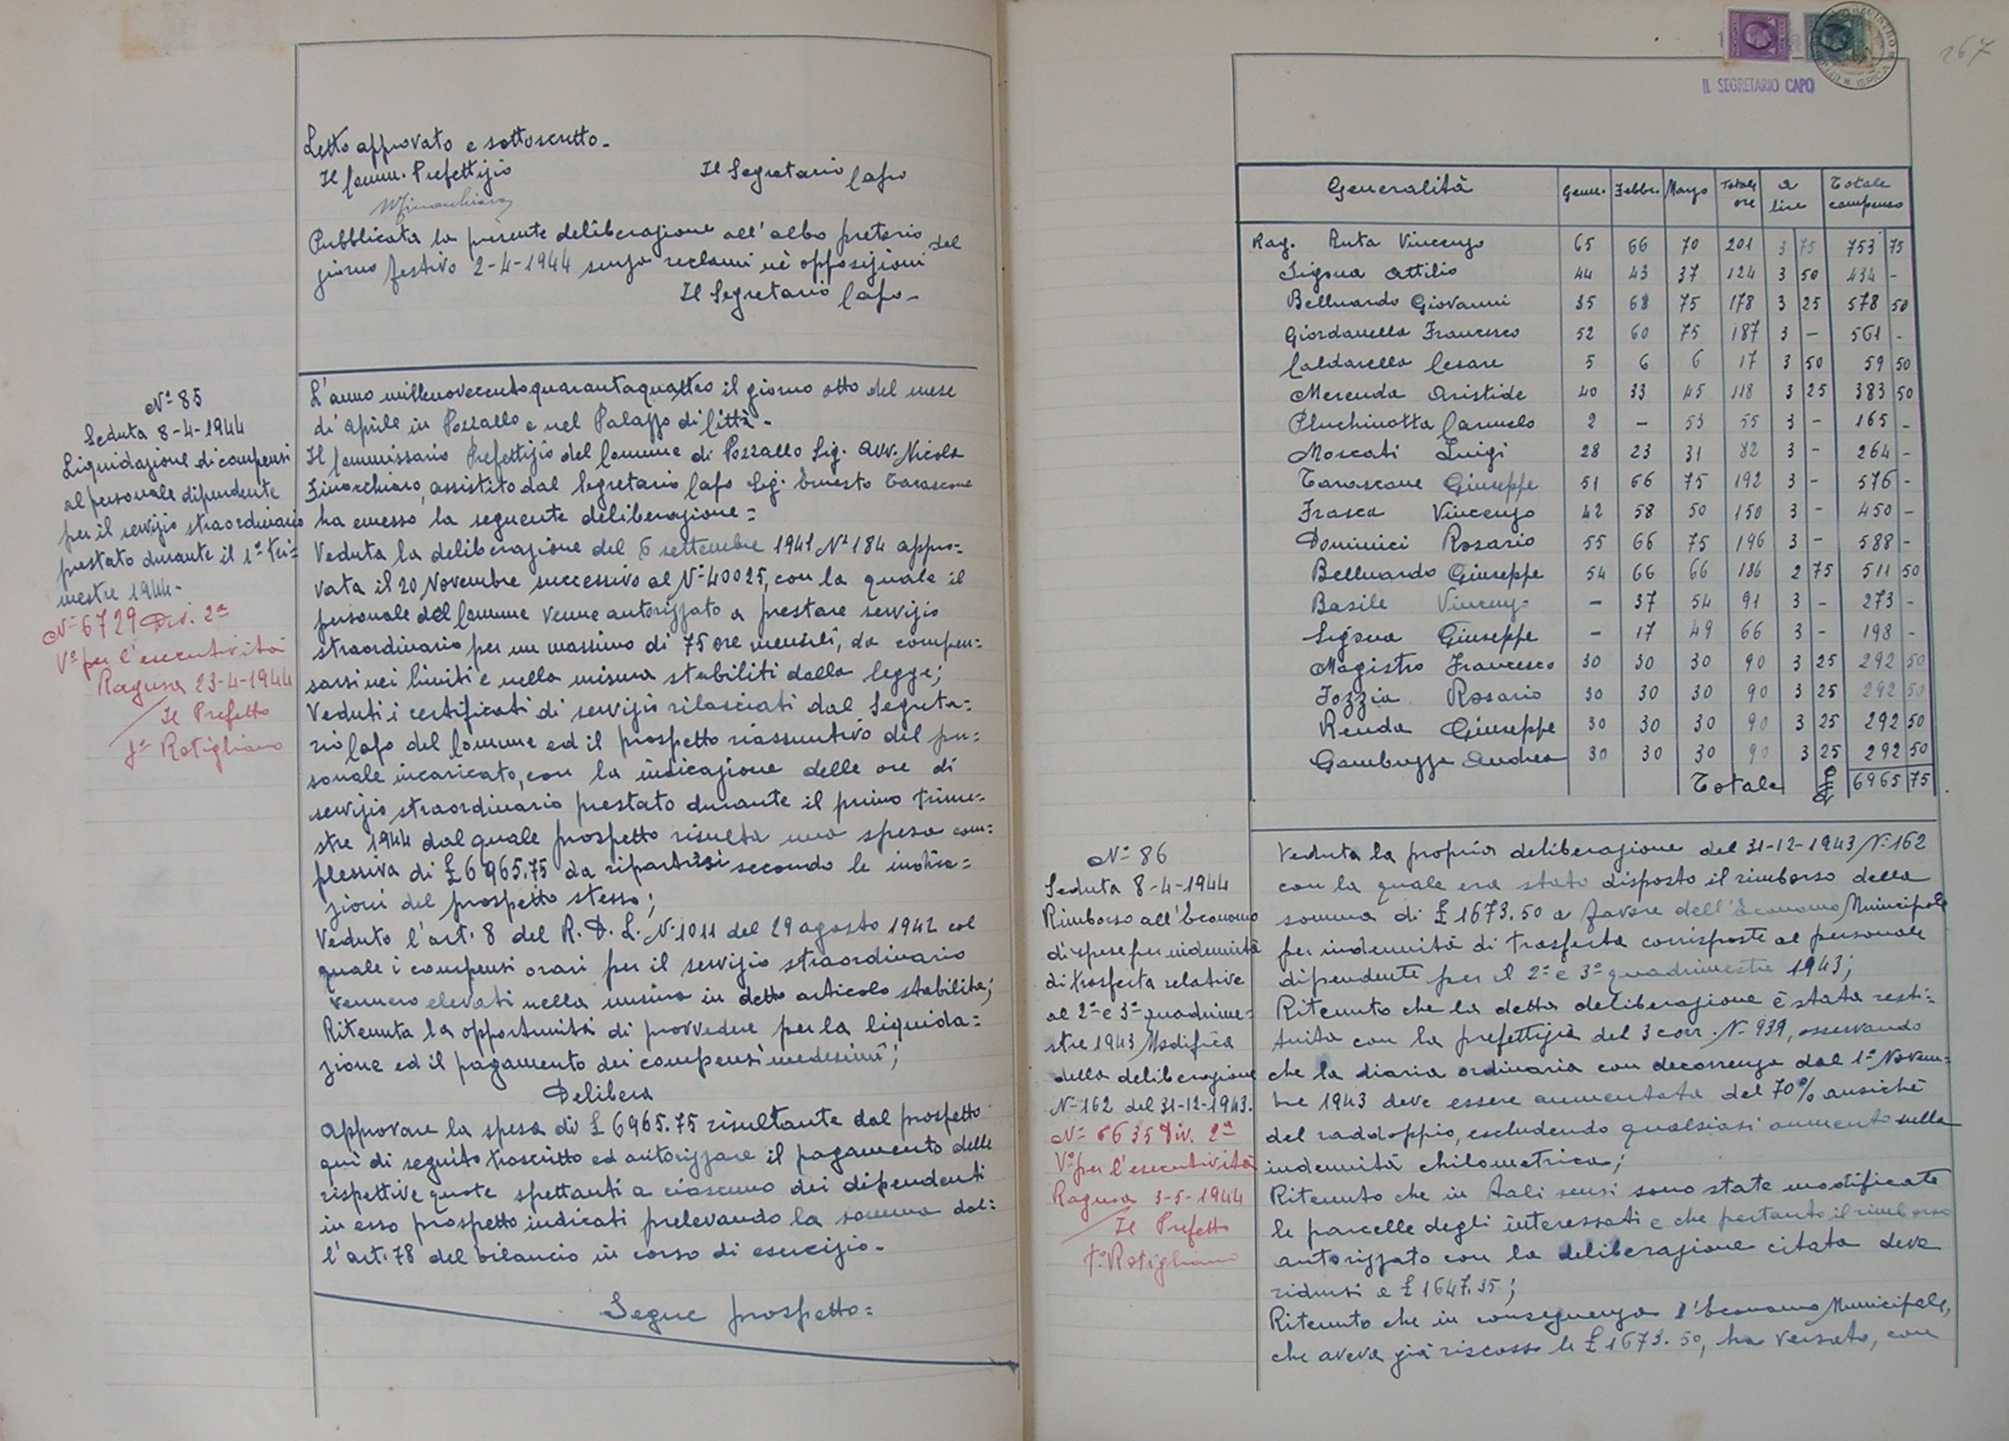 Letto approvato e sottoscritto -
Il Comm. Prefettizio Il Segretario Capo
Pubblicata la presente deliberazione all'albo pretorio del
giorno festivo 2-4-1944 senza reclami nè opposizioni
Il Segretario Capo -
N° 85
Seduta 8-4-1944
Liquidazione di compensi
al personale dipendente
per il servizio straordinario
prestato durante il 1° tri=
mestre 1944 -
N° 6729 Div. 2ª
V° per l'esecutività
Ragusa 23-4-1944
Il Prefetto
f° Rotigliano
L'anno millenovecentoquarantaquattro il giorno otto del mese
di Aprile in Pozzallo e nel Palazzo di Città -
Il Commissario Prefettizio del Comune di Pozzallo Sig. Avv. Nicola
Finocchiaro, assistito dal Segretario Capo Sig. Ernesto Tarascone
ha emesso la seguente deliberazione =
Veduta la deliberazione del 6 settembre 1941 N° 184 appro=
vata il 20 Novembre successivo al N° 40025, con la quale il
personale del Comune venne autorizzato a prestare servizio
straordinario per un massimo di 75 ore mensili, da compen=
sarsi nei limiti e nella misura stabiliti dalla legge;
Veduti i certificati di servizio rilasciati dal Segreta=
rio Capo del Comune ed il prospetto riassuntivo del per=
sonale incaricato, con la indicazione delle ore di
servizio straordinario prestato durante il primo trime=
stre 1944 dal quale prospetto risulta una spesa com=
plessiva di £ 6965.75 da ripartirsi secondo le indica=
zioni del prospetto stesso;
Veduto l'art. 8 del R. D. L. N° 1011 del 29 agosto 1942 col
quale i compensi orari per il servizio straordinario
vennero elevati nella misura in detto articolo stabilita;
Ritenuta la opportunità di provvedere per la liquida=
zione ed il pagamento dei compensi medesimi;
Delibera
Approvare la spesa di £ 6965.75 risultante dal prospetto
qui di seguito trascritto ed autorizzare il pagamento delle
rispettive quote spettanti a ciascuno dei dipendenti
in esso prospetto indicati prelevando la somma dal=
l'art. 78 del bilancio in corso di esercizio -
Segue prospetto =
267
IL SEGRETARIO CAPO
ISPICA
Generalità Genn. Febbr. Marzo Totale ore a lire Totale compenso
Rag. Ruta Vincenzo 65 66 70 201 3 75 753 75
Sigona Attilio 44 43 37 124 3 50 434 -
Belluardo Giovanni 35 68 75 178 3 25 578 50
Giordanella Francesco 52 60 75 187 3 - 561 -
Caldarella Cesare 5 6 6 17 3 50 59 50
Merenda Aristide 40 33 45 118 3 25 383 50
Pluchinotta Carmelo 2 - 53 55 3 - 165 -
Moscati Luigi 28 23 31 82 3 - 264 -
Tarascone Giuseppe 51 66 75 192 3 - 576 -
Frasca Vincenzo 42 58 50 150 3 - 450 -
Dominici Rosario 55 66 75 196 3 - 588 -
Belluardo Giuseppe 54 66 66 186 2 75 511 50
Basile Vincenzo - 37 54 91 3 - 273 -
Sigona Giuseppe - 17 49 66 3 - 198 -
Magistro Francesco 30 30 30 90 3 25 292 50
Iozzia Rosario 30 30 30 90 3 25 292 50
Renda Giuseppe 30 30 30 90 3 25 292 50
Gambuzza Andrea 30 30 30 90 3 25 292 50
Totale £ 6965 75
N° 86
Seduta 8-4-1944
Rimborso all'Economo
di spese per indennità
di trasferta relative
al 2° e 3° quadrime=
stre 1943 Modifica
della deliberazione
N° 162 del 31-12-1943.
N° 6635 Div. 2ª
V° per l'esecutività
Ragusa 3-5-1944
Il Prefetto
f° Rotigliano
Veduta la propria deliberazione del 31-12-1943 N° 162
con la quale era stato disposto il rimborso della
somma di £ 1673.50 a favore dell'Economo Municipale
per indennità di trasferta corrisposte al personale
dipendente per il 2° e 3° quadrimestre 1943;
Ritenuto che la detta deliberazione è stata resti=
tuita con la prefettizia del 3 corr. N° 939, osservando
che la diaria ordinaria con decorrenza dal 1° Novem=
bre 1943 deve essere aumentata del 70% anzichè
del raddoppio, escludendo qualsiasi aumento sulla
indennità chilometrica;
Ritenuto che in tali sensi sono state modificate
le parcelle degli interessati e che pertanto il rimborso
autorizzato con la deliberazione citata deve
ridursi a £ 1647.35;
Ritenuto che in conseguenza l'Economo Municipale,
che aveva già riscosso le £ 1673.50, ha versato, con